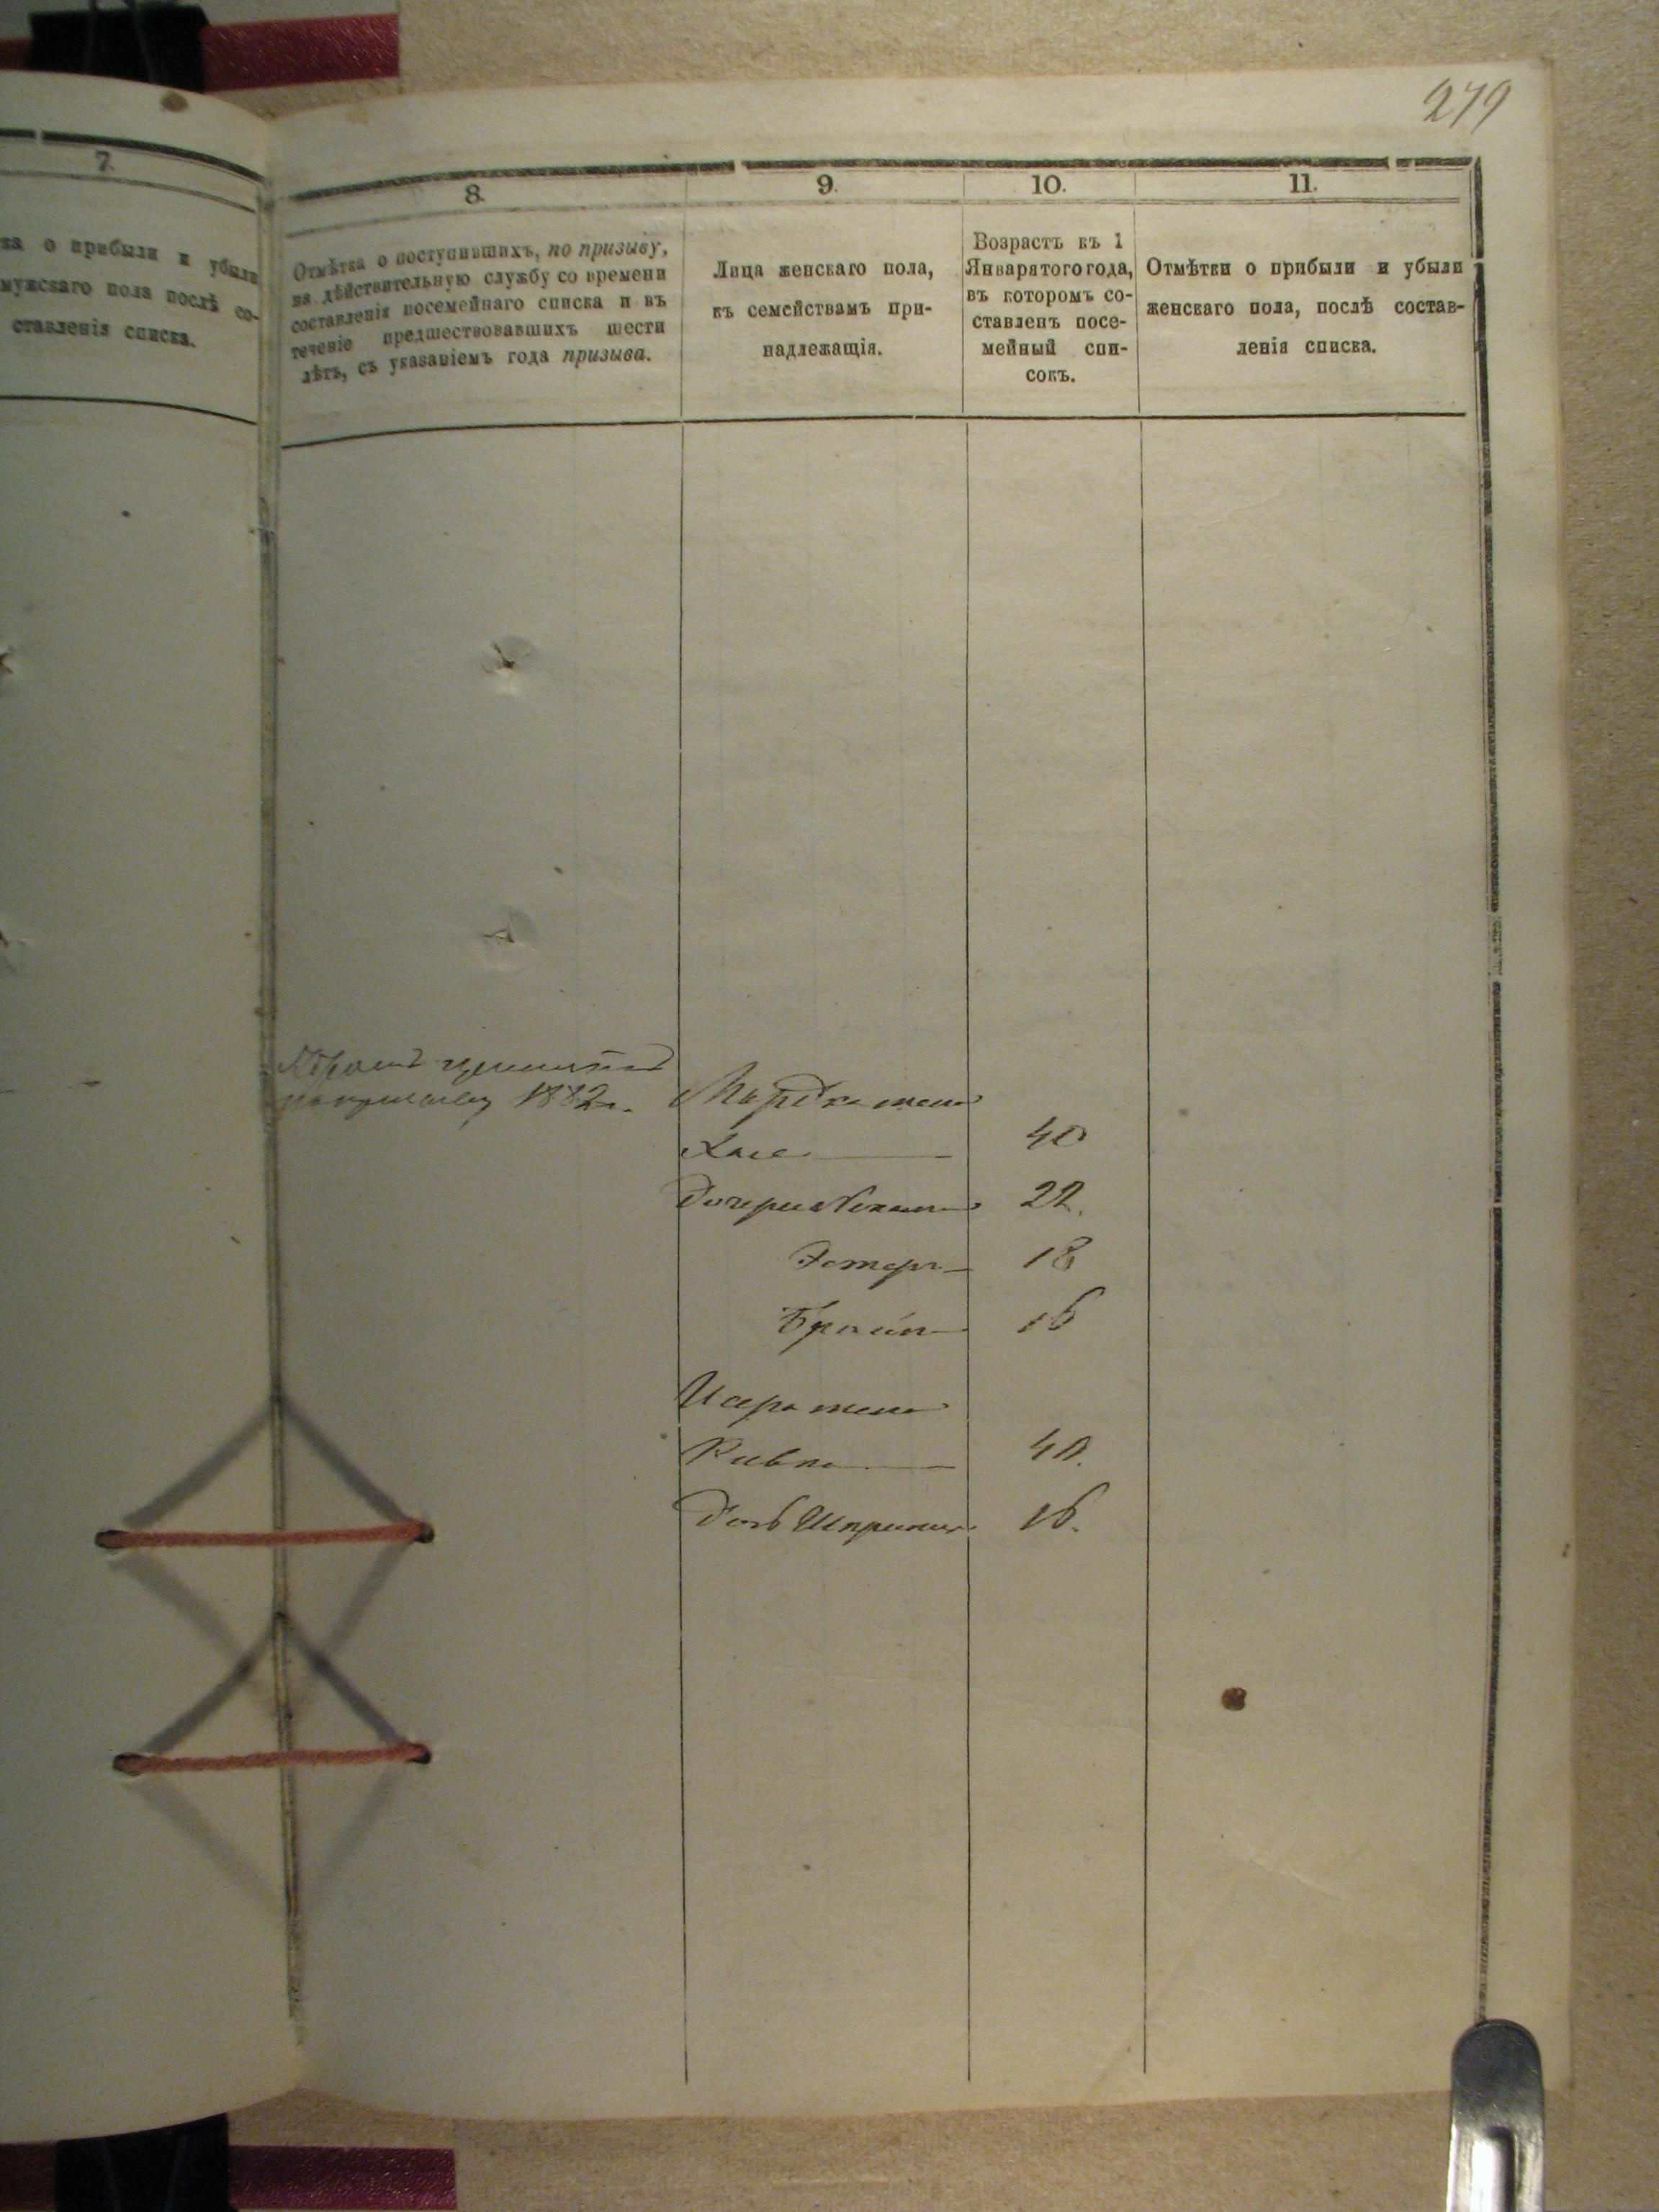 279
7.
ка о прибыли и убыли
мужскаго пола послѣ со-
ставленія списка.
8.
Отмѣтка о поступившихъ, по призыву,
на дѣйствительную службу со времени
составленія посемейнаго списка и въ
теченіе предшествовавшихъ шести
лѣтъ, съ указаніемъ года призыва.
9.
Лица женскаго пола,
къ семействамъ при-
надлежащія.
10.
Возрастъ къ 1
Января того года,
въ которомъ со-
ставленъ посе-
мейный спи-
сокъ.
11.
Отмѣтки о прибыли и убыли
женскаго пола, послѣ состав-
ленія списка.
1882г.
Мордка жена
Хася 40
Дочери 22.
Эстеръ 18
16
Исера жена
Ривка 40.
Дочь Шпринца 16.